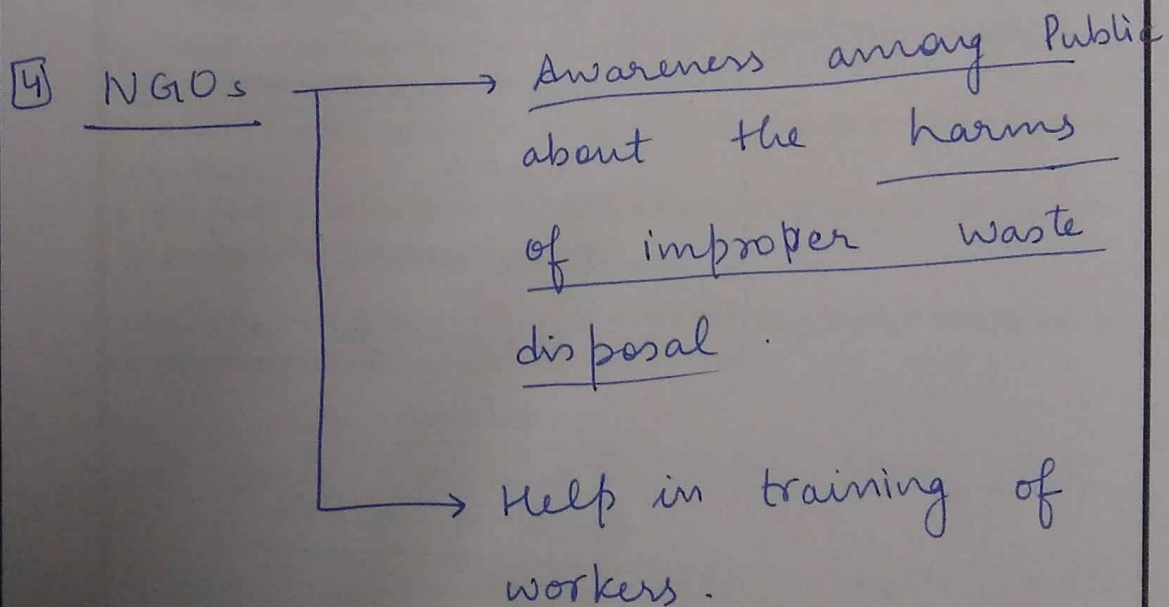 4 NGOs → Awareness among Public
about the harms
of improper waste
disposal.
→ Help in training of
workers.